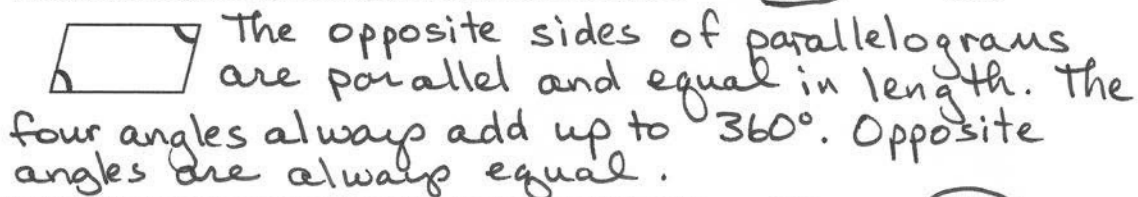 The opposite sides of parallelograms
are parallel and equal in length. The
four angles always add up to 360°. Opposite
angles are always equal.